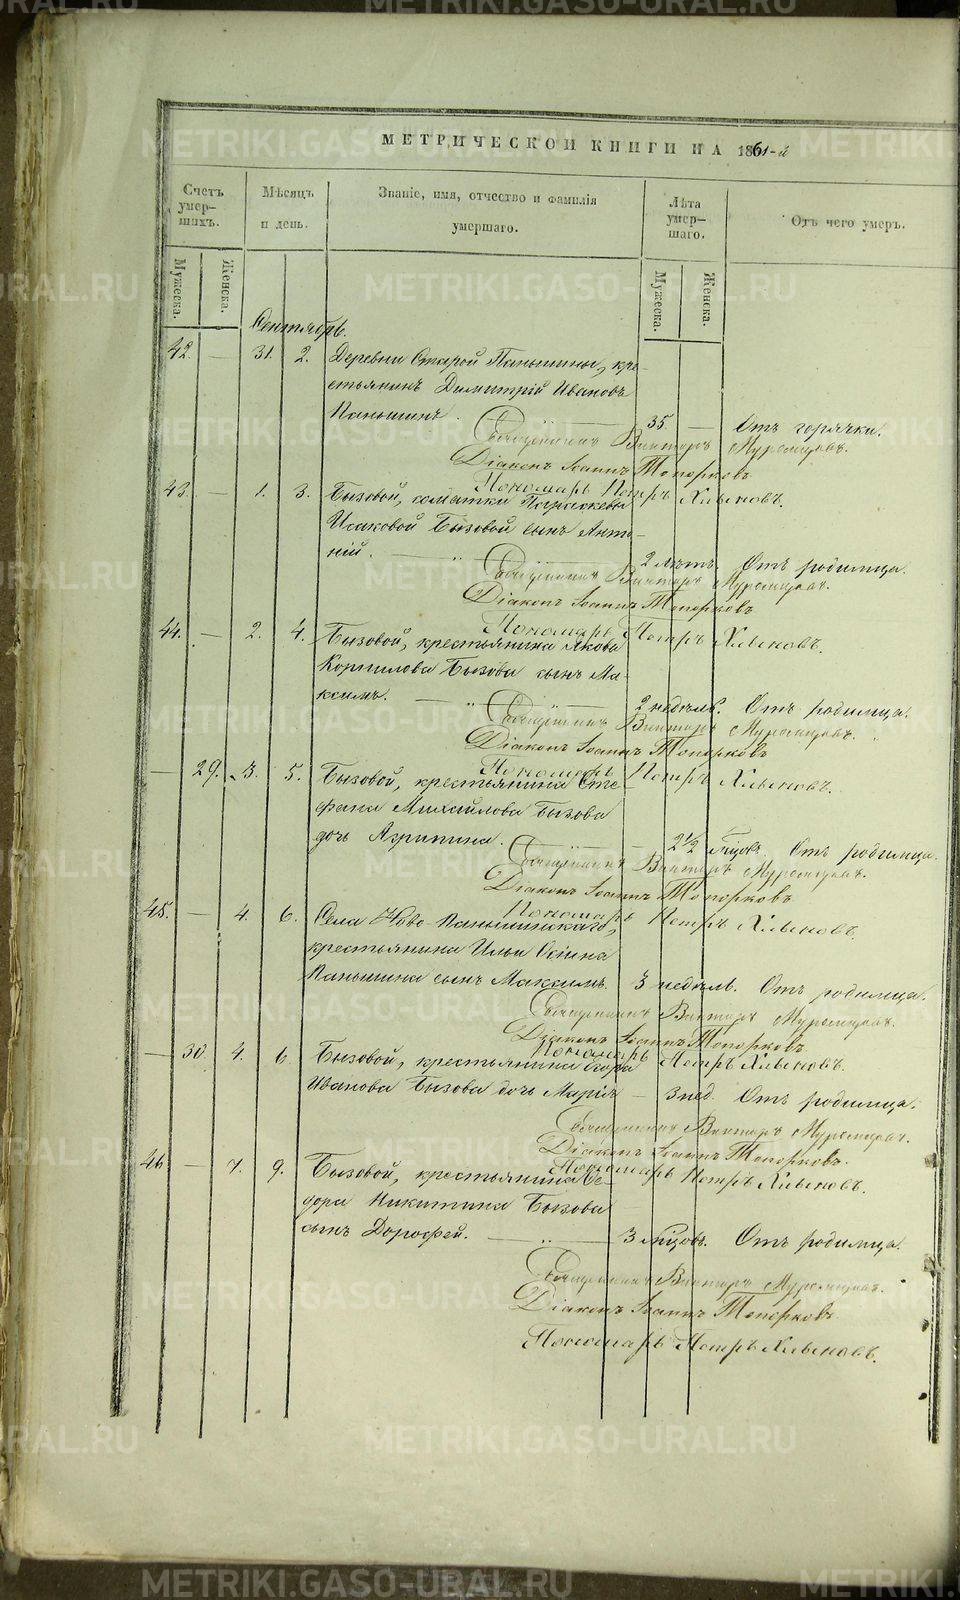 МЕТРИЧЕСКОЙ КНИГИ НА 1861-й
Счетъ умер-шихъ.
Мѣсяцъ и день.
Званіе, имя, отчество и фамилія умершаго.
Лѣта умер-шаго.
Отъ чего умеръ.
Мужеска. Женска. Мужеска. Женска.
Сентябрь.
42. — 31. 2. Деревни Старой Паньшины, кре-
стьянинъ Димитрій Ивановъ
Паньшинъ. — 35. — Отъ горячки.
Священникъ Викторъ Муромцевъ.
Діаконъ Іоаннъ Топорковъ
Пономарь Петръ Хлыновъ.
43. — 1. 3. Бызовой, солдатки Параскевы
Исаковой Бызовой сынъ Анто-
ній. — „ — 2 лѣтъ. Отъ родимца.
Священникъ Викторъ Муромцевъ.
Діаконъ Іоаннъ Топорковъ
Пономарь Петръ Хлыновъ.
44. — 2. 4. Бызовой, крестьянина Якова
Корнилова Бызова сынъ Ма-
ксимъ. — „ — 2 недѣль. Отъ родимца.
Священникъ Викторъ Муромцевъ.
Діаконъ Іоаннъ Топорковъ
Пономарь Петръ Хлыновъ.
— 29. 3. 5. Бызовой, крестьянина Сте-
фана Михайлова Бызова
дочь Агрипина. — 2½ мѣцовъ. Отъ родимца.
Священникъ Викторъ Муромцевъ.
Діаконъ Іоаннъ Топорковъ
Пономарь Петръ Хлыновъ.
45. — 4. 6. Села Ново-Паньшинскаго,
крестьянина Ильи Осіина
Паньшина сынъ Максимъ. 3 недѣль. Отъ родимца.
Священникъ Викторъ Муромцевъ.
Діаконъ Іоаннъ Топорковъ
Пономарь Петръ Хлыновъ.
— 30. 4. 6. Бызовой, крестьянина Егора
Иванова Бызова дочь Марія — 3 нед. Отъ родимца.
Священникъ Викторъ Муромцевъ.
Діаконъ Іоаннъ Топорковъ.
Пономарь Петръ Хлыновъ.
46. — 7. 9. Бызовой, крестьянина Ѳе-
дора Никитина Бызова
сынъ Дорофей. — „ — 3 мѣцовъ. Отъ родимца.
Священникъ Викторъ Муромцевъ.
Діаконъ Іоаннъ Топорковъ
Пономарь Петръ Хлыновъ.
METRIKI.GASO-URAL.RU